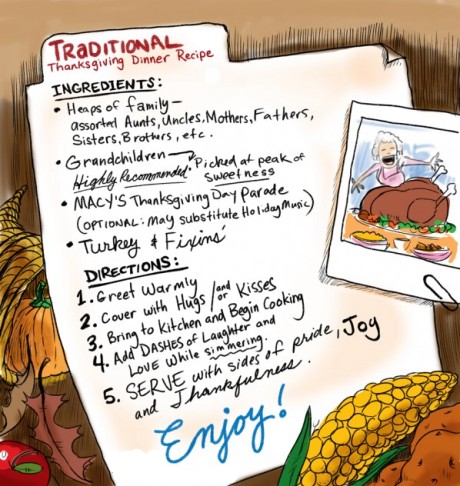 TRADITIONAL
Thanksgiving Dinner Recipe
INGREDIENTS:
• Heaps of family—
assorted Aunts, Uncles, Mothers, Fathers,
Sisters, Brothers, etc.
• Grandchildren — Picked at peak of
Highly Recommended. sweetness
• MACY'S Thanksgiving Day Parade
(OPTIONAL: may substitute Holiday Music)
• Turkey & Fixins'
DIRECTIONS:
1. Greet Warmly
2. Cover with Hugs and/or Kisses
3. Bring to Kitchen and Begin Cooking
4. Add DASHES of Laughter and
LOVE while simmering.
5. SERVE with sides of pride, Joy
and Thankfulness.
Enjoy!